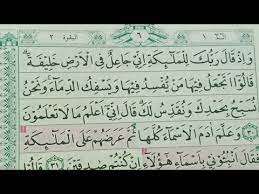 البقرة ٢ ٦ الٓمٓ ١
وَإِذْ قَالَ رَبُّكَ لِلْمَلٰٓئِكَةِ إِنِّي جَاعِلٌ فِي الْأَرْضِ خَلِيفَةً ۖ
قَالُوٓا أَتَجْعَلُ فِيهَا مَنْ يُفْسِدُ فِيهَا وَيَسْفِكُ الدِّمَآءَ ۚ وَنَحْنُ
نُسَبِّحُ بِحَمْدِكَ وَنُقَدِّسُ لَكَ ۖ قَالَ إِنِّيٓ أَعْلَمُ مَا لَا تَعْلَمُونَ
﴿٣٠﴾ وَعَلَّمَ اٰدَمَ الْأَسْمَآءَ كُلَّهَا ثُمَّ عَرَضَهُمْ عَلَى الْمَلٰٓئِكَةِ
فَقَالَ أَنْۢبِـُٔونِي بِأَسْمَآءِ هٰٓؤُلَآءِ إِنْ كُنْتُمْ صٰدِقِينَ ﴿٣١﴾ قَالُوا